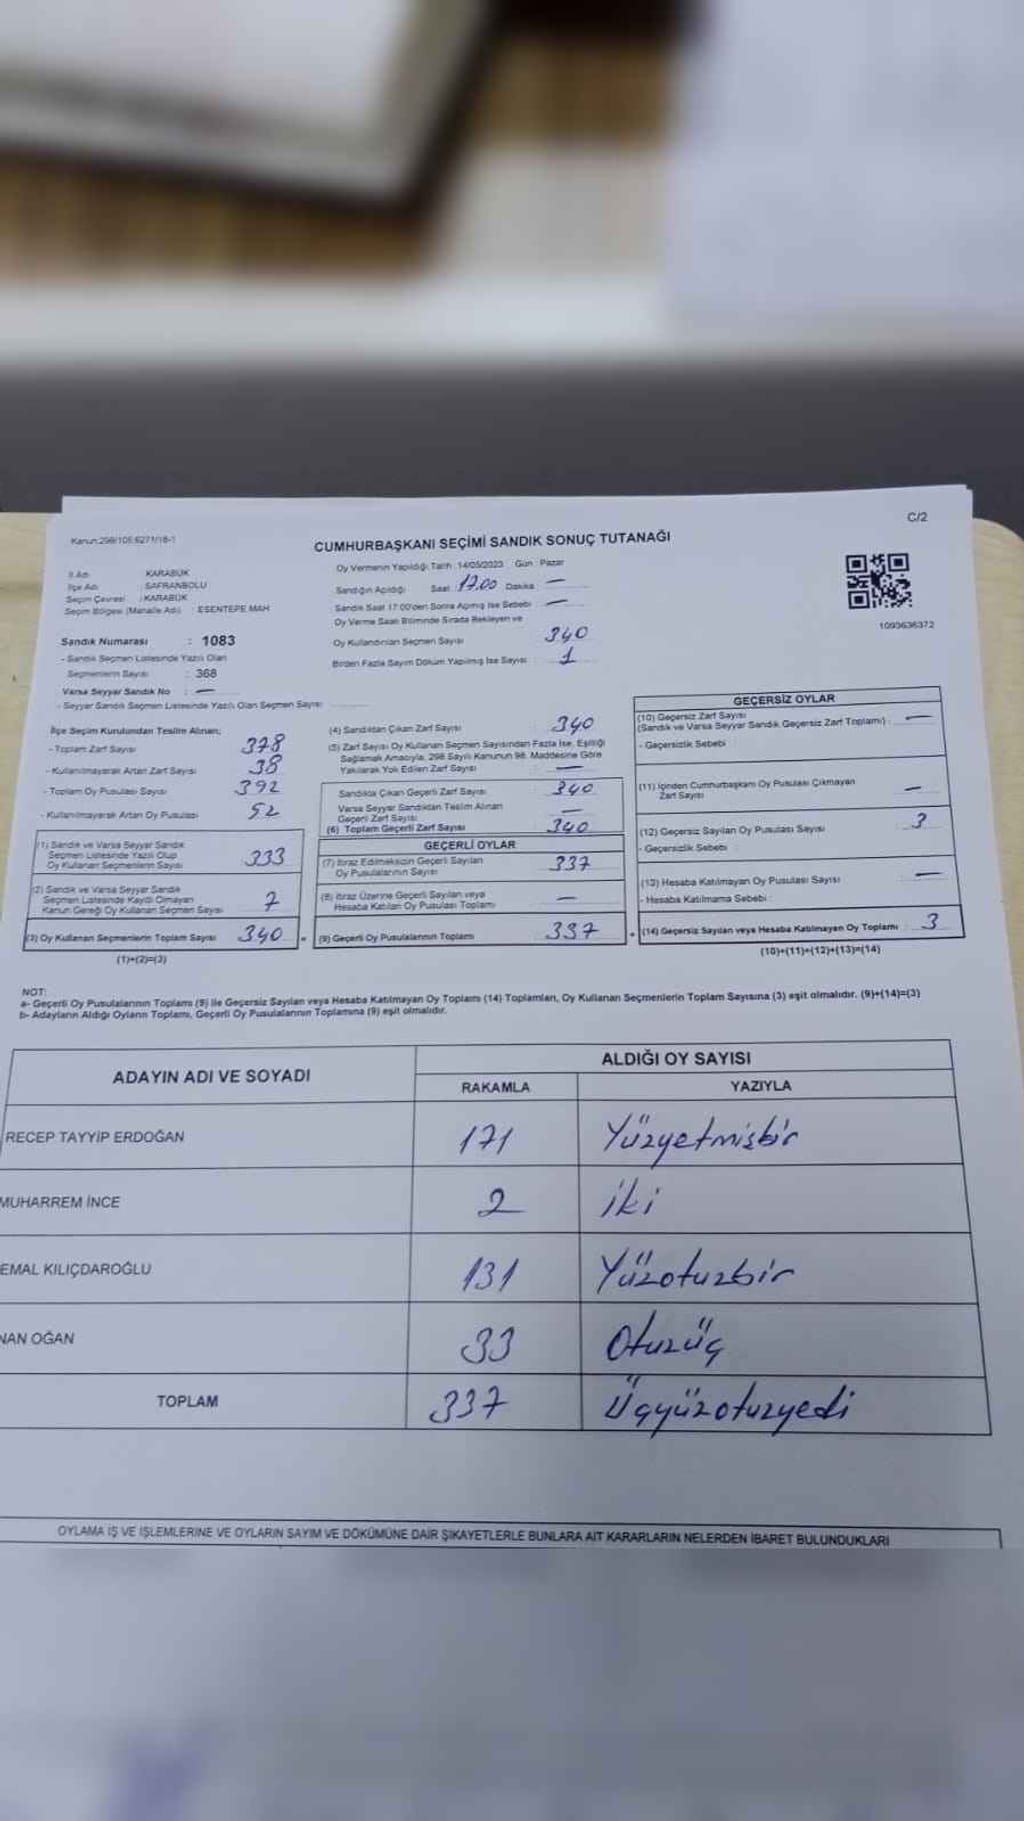 C/2
Kanun:298/105.6271/18-1
CUMHURBAŞKANI SEÇİMİ SANDIK SONUÇ TUTANAĞI
İl Adı : KARABÜK
İlçe Adı : SAFRANBOLU
Seçim Çevresi : KARABÜK
Seçim Bölgesi (Mahalle Adı) : ESENTEPE MAH
Oy Vermenin Yapıldığı Tarih : 14/05/2023 Gün : Pazar
Sandığın Açıldığı Saat 17.00 Dakika —
Sandık Saat 17:00'den Sonra Açmış İse Sebebi —
Oy Verme Saati Bitiminde Sırada Bekleyen ve
Oy Kullandırılan Seçmen Sayısı 340
Birden Fazla Sayım Döküm Yapılmış İse Sayısı : 1
1093636372
Sandık Numarası : 1083
- Sandık Seçmen Listesinde Yazılı Olan
Seçmenlerin Sayısı : 368
Varsa Seyyar Sandık No : —
- Seyyar Sandık Seçmen Listesinde Yazılı Olan Seçmen Sayısı
İlçe Seçim Kurulundan Teslim Alınan;
- Toplam Zarf Sayısı 378
- Kullanılmayarak Artan Zarf Sayısı 38
- Toplam Oy Pusulası Sayısı 392
- Kullanılmayarak Artan Oy Pusulası 52
(1) Sandık ve Varsa Seyyar Sandık
Seçmen Listesinde Yazılı Olup
Oy Kullanan Seçmenlerin Sayısı 333
(2) Sandık ve Varsa Seyyar Sandık
Seçmen Listesinde Kaydı Olmayan
Kanun Gereği Oy Kullanan Seçmen Sayısı 7
(3) Oy Kullanan Seçmenlerin Toplam Sayısı 340
(1)+(2)=(3)
(4) Sandıktan Çıkan Zarf Sayısı 340
(5) Zarf Sayısı Oy Kullanan Seçmen Sayısından Fazla İse, Eşitliği
Sağlamak Amacıyla, 298 Sayılı Kanunun 98. Maddesine Göre
Yakılarak Yok Edilen Zarf Sayısı —
Sandıkta Çıkan Geçerli Zarf Sayısı 340
Varsa Seyyar Sandıktan Teslim Alınan
Geçerli Zarf Sayısı —
(6) Toplam Geçerli Zarf Sayısı 340
GEÇERLİ OYLAR
(7) İtiraz Edilmeksizin Geçerli Sayılan
Oy Pusulalarının Sayısı 337
(8) İtiraz Üzerine Geçerli Sayılan veya
Hesaba Katılan Oy Pusulası Toplamı —
(9) Geçerli Oy Pusulalarının Toplamı 337
GEÇERSİZ OYLAR
(10) Geçersiz Zarf Sayısı
(Sandık ve Varsa Seyyar Sandık Geçersiz Zarf Toplamı) : —
- Geçersizlik Sebebi
(11) İçinden Cumhurbaşkanı Oy Pusulası Çıkmayan
Zarf Sayısı —
(12) Geçersiz Sayılan Oy Pusulası Sayısı 3
- Geçersizlik Sebebi
(13) Hesaba Katılmayan Oy Pusulası Sayısı —
- Hesaba Katılmama Sebebi :
(14) Geçersiz Sayılan veya Hesaba Katılmayan Oy Toplamı : 3
(10)+(11)+(12)+(13)=(14)
NOT:
a- Geçerli Oy Pusulalarının Toplamı (9) ile Geçersiz Sayılan veya Hesaba Katılmayan Oy Toplamı (14) Toplamları, Oy Kullanan Seçmenlerin Toplam Sayısına (3) eşit olmalıdır. (9)+(14)=(3)
b- Adayların Aldığı Oyların Toplamı, Geçerli Oy Pusulalarının Toplamına (9) eşit olmalıdır.
ADAYIN ADI VE SOYADI ALDIĞI OY SAYISI
RAKAMLA YAZIYLA
RECEP TAYYİP ERDOĞAN 171 Yüzyetmişbir
MUHARREM İNCE 2 iki
EMAL KILIÇDAROĞLU 131 Yüzotuzbir
NAN OĞAN 33 Otuzüç
TOPLAM 337 Üçyüzotuzyedi
OYLAMA İŞ VE İŞLEMLERİNE VE OYLARIN SAYIM VE DÖKÜMÜNE DAİR ŞİKAYETLERLE BUNLARA AİT KARARLARIN NELERDEN İBARET BULUNDUKLARI